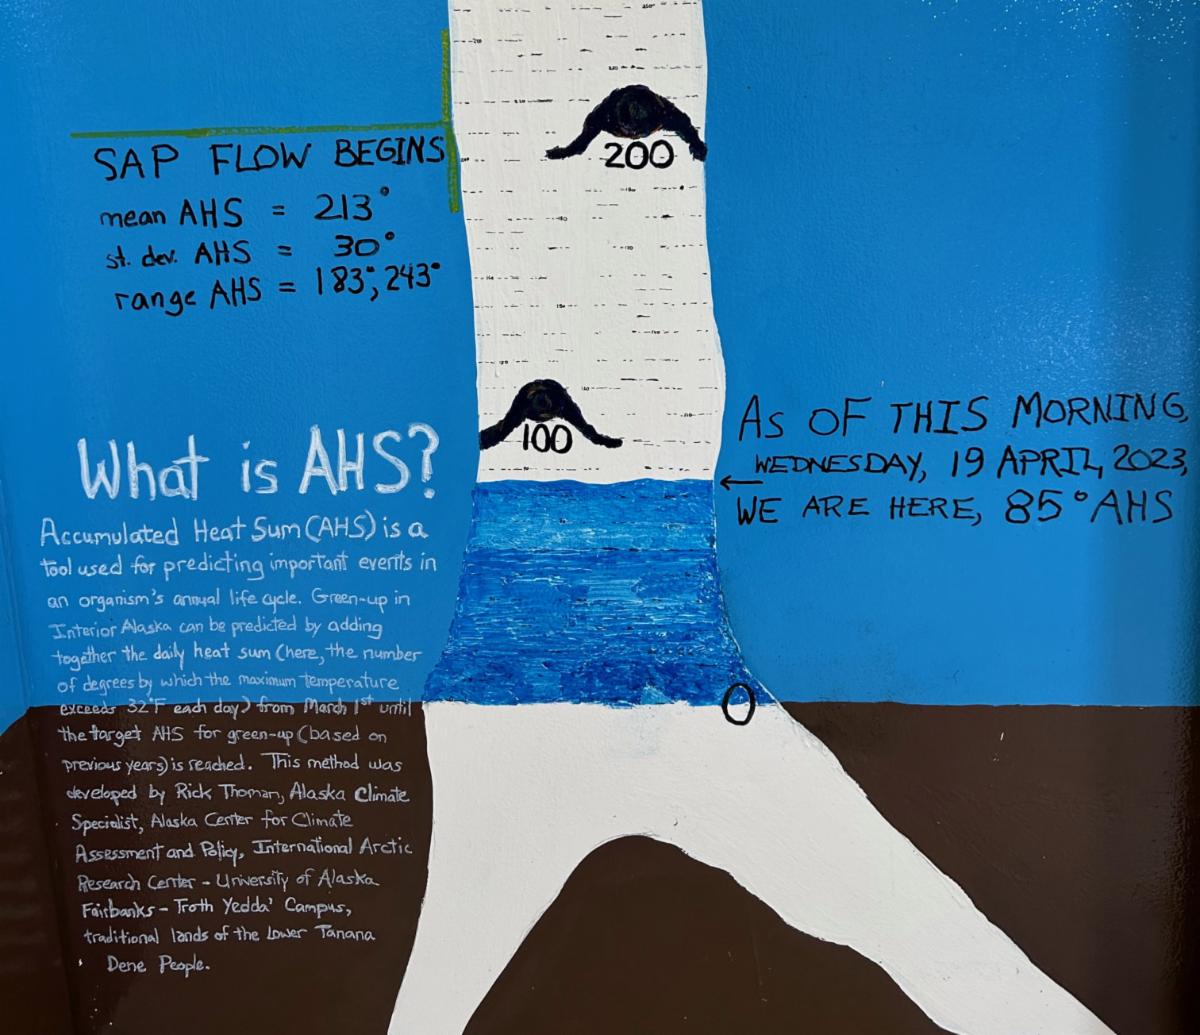 SAP FLOW BEGINS
mean AHS = 213°
st. dev. AHS = 30°
range AHS = 183°, 243°
200
100
0
What is AHS?
Accumulated Heat Sum (AHS) is a
tool used for predicting important events in
an organism's annual life cycle. Green-up in
Interior Alaska can be predicted by adding
together the daily heat sum (here, the number
of degrees by which the maximum temperature
exceeds 32°F each day) from March 1st until
the target AHS for green-up (based on
previous years) is reached. This method was
developed by Rick Thoman, Alaska Climate
Specialist, Alaska Center for Climate
Assessment and Policy, International Arctic
Research Center - University of Alaska
Fairbanks - Troth Yedda' Campus,
traditional lands of the Lower Tanana
Dene People.
AS OF THIS MORNING,
WEDNESDAY, 19 APRIL, 2023,
WE ARE HERE, 85° AHS